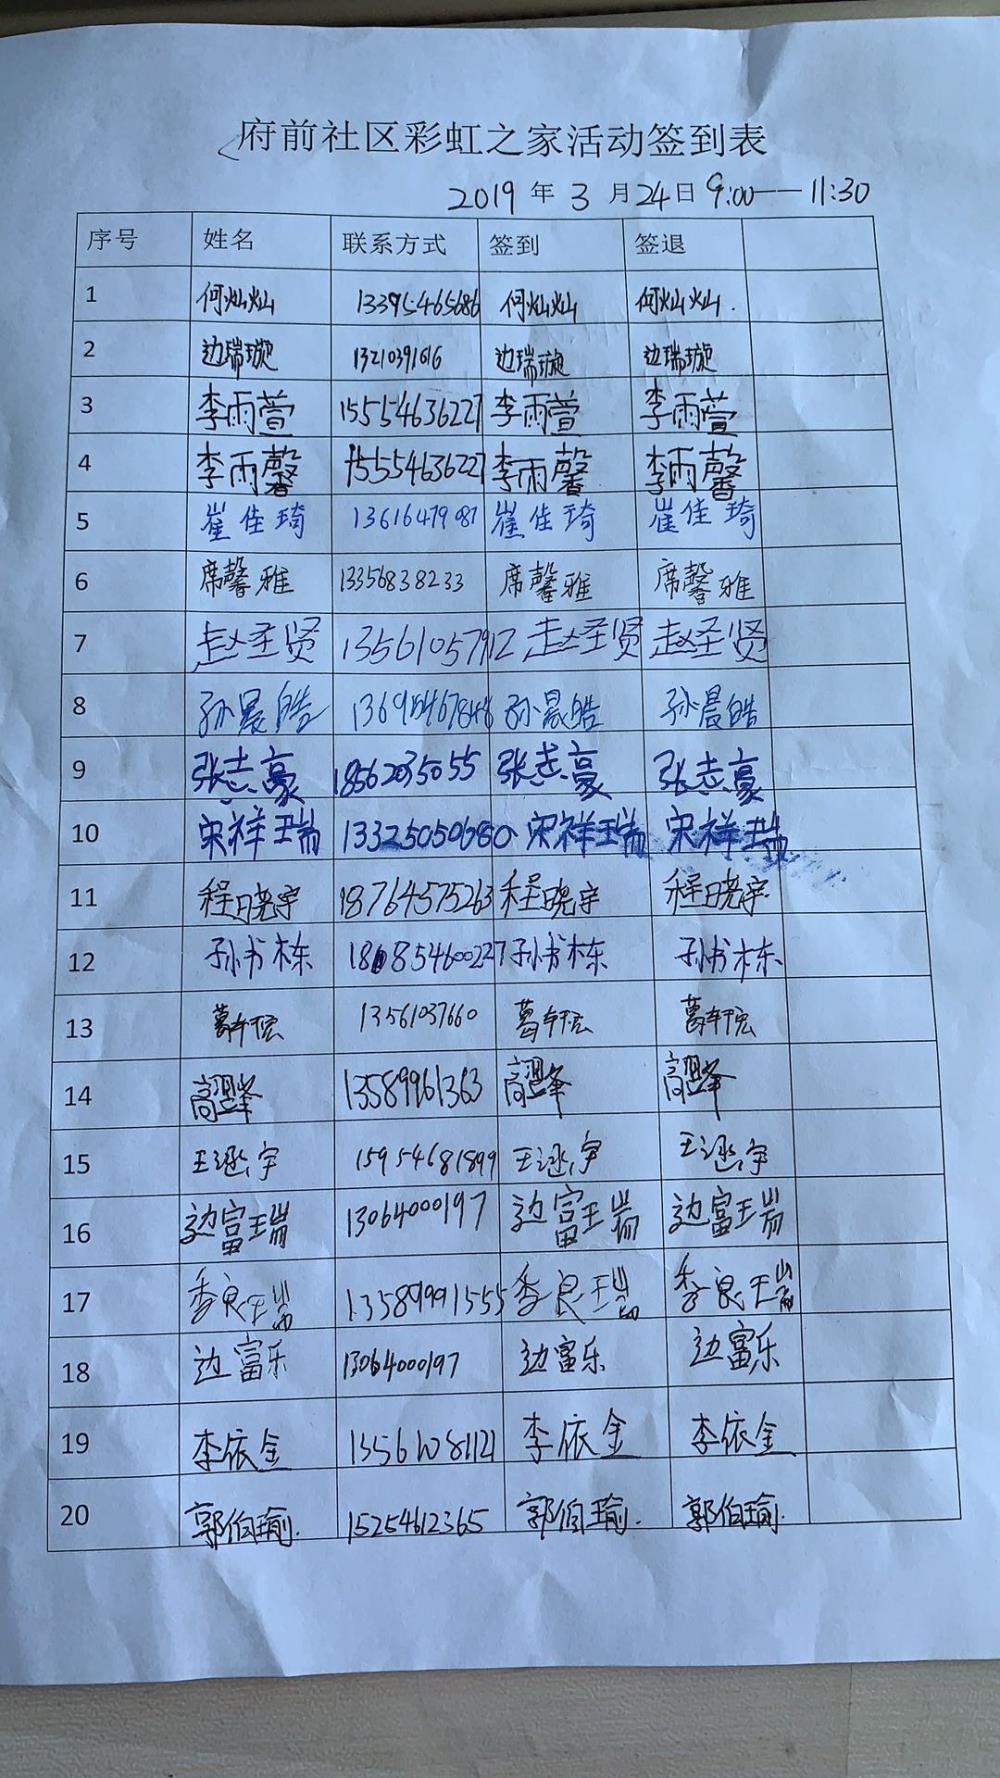 府前社区彩虹之家活动签到表
2019 年 3 月 24 日 9:00——11:30
序号 姓名 联系方式 签到 签退
1 何灿灿 13395465686 何灿灿 何灿灿.
2 边瑞璇 13210391616 边瑞璇 边瑞璇
3 李雨萱 15554636227 李雨萱 李雨萱
4 李雨馨 15554636227 李雨馨 李雨馨
5 崔佳琦 崔佳琦 崔佳琦
6 席馨雅 13356838233 席馨雅 席馨雅
7 赵圣贤 13561057912 赵圣贤 赵圣贤
8 孙晨皓 孙晨皓 孙晨皓
9 张志豪 18562035055 张志豪 张志豪
10 宋祥瑞 13325050680 宋祥瑞 宋祥瑞
11 程晓宇 18764575263 程晓宇 程晓宇
12 孙书栋 孙书栋 孙书栋
13 13561037660
14 13589961363
15 15954681899
16 边富瑞 13064000197 边富瑞 边富瑞
17 季良瑞 13589991555 季良瑞 季良瑞
18 边富乐 13064000197 边富乐 边富乐
19 李依金 13561081121 李依金 李依金
20 郭伯瑜. 15254612365 郭伯瑜. 郭伯瑜.